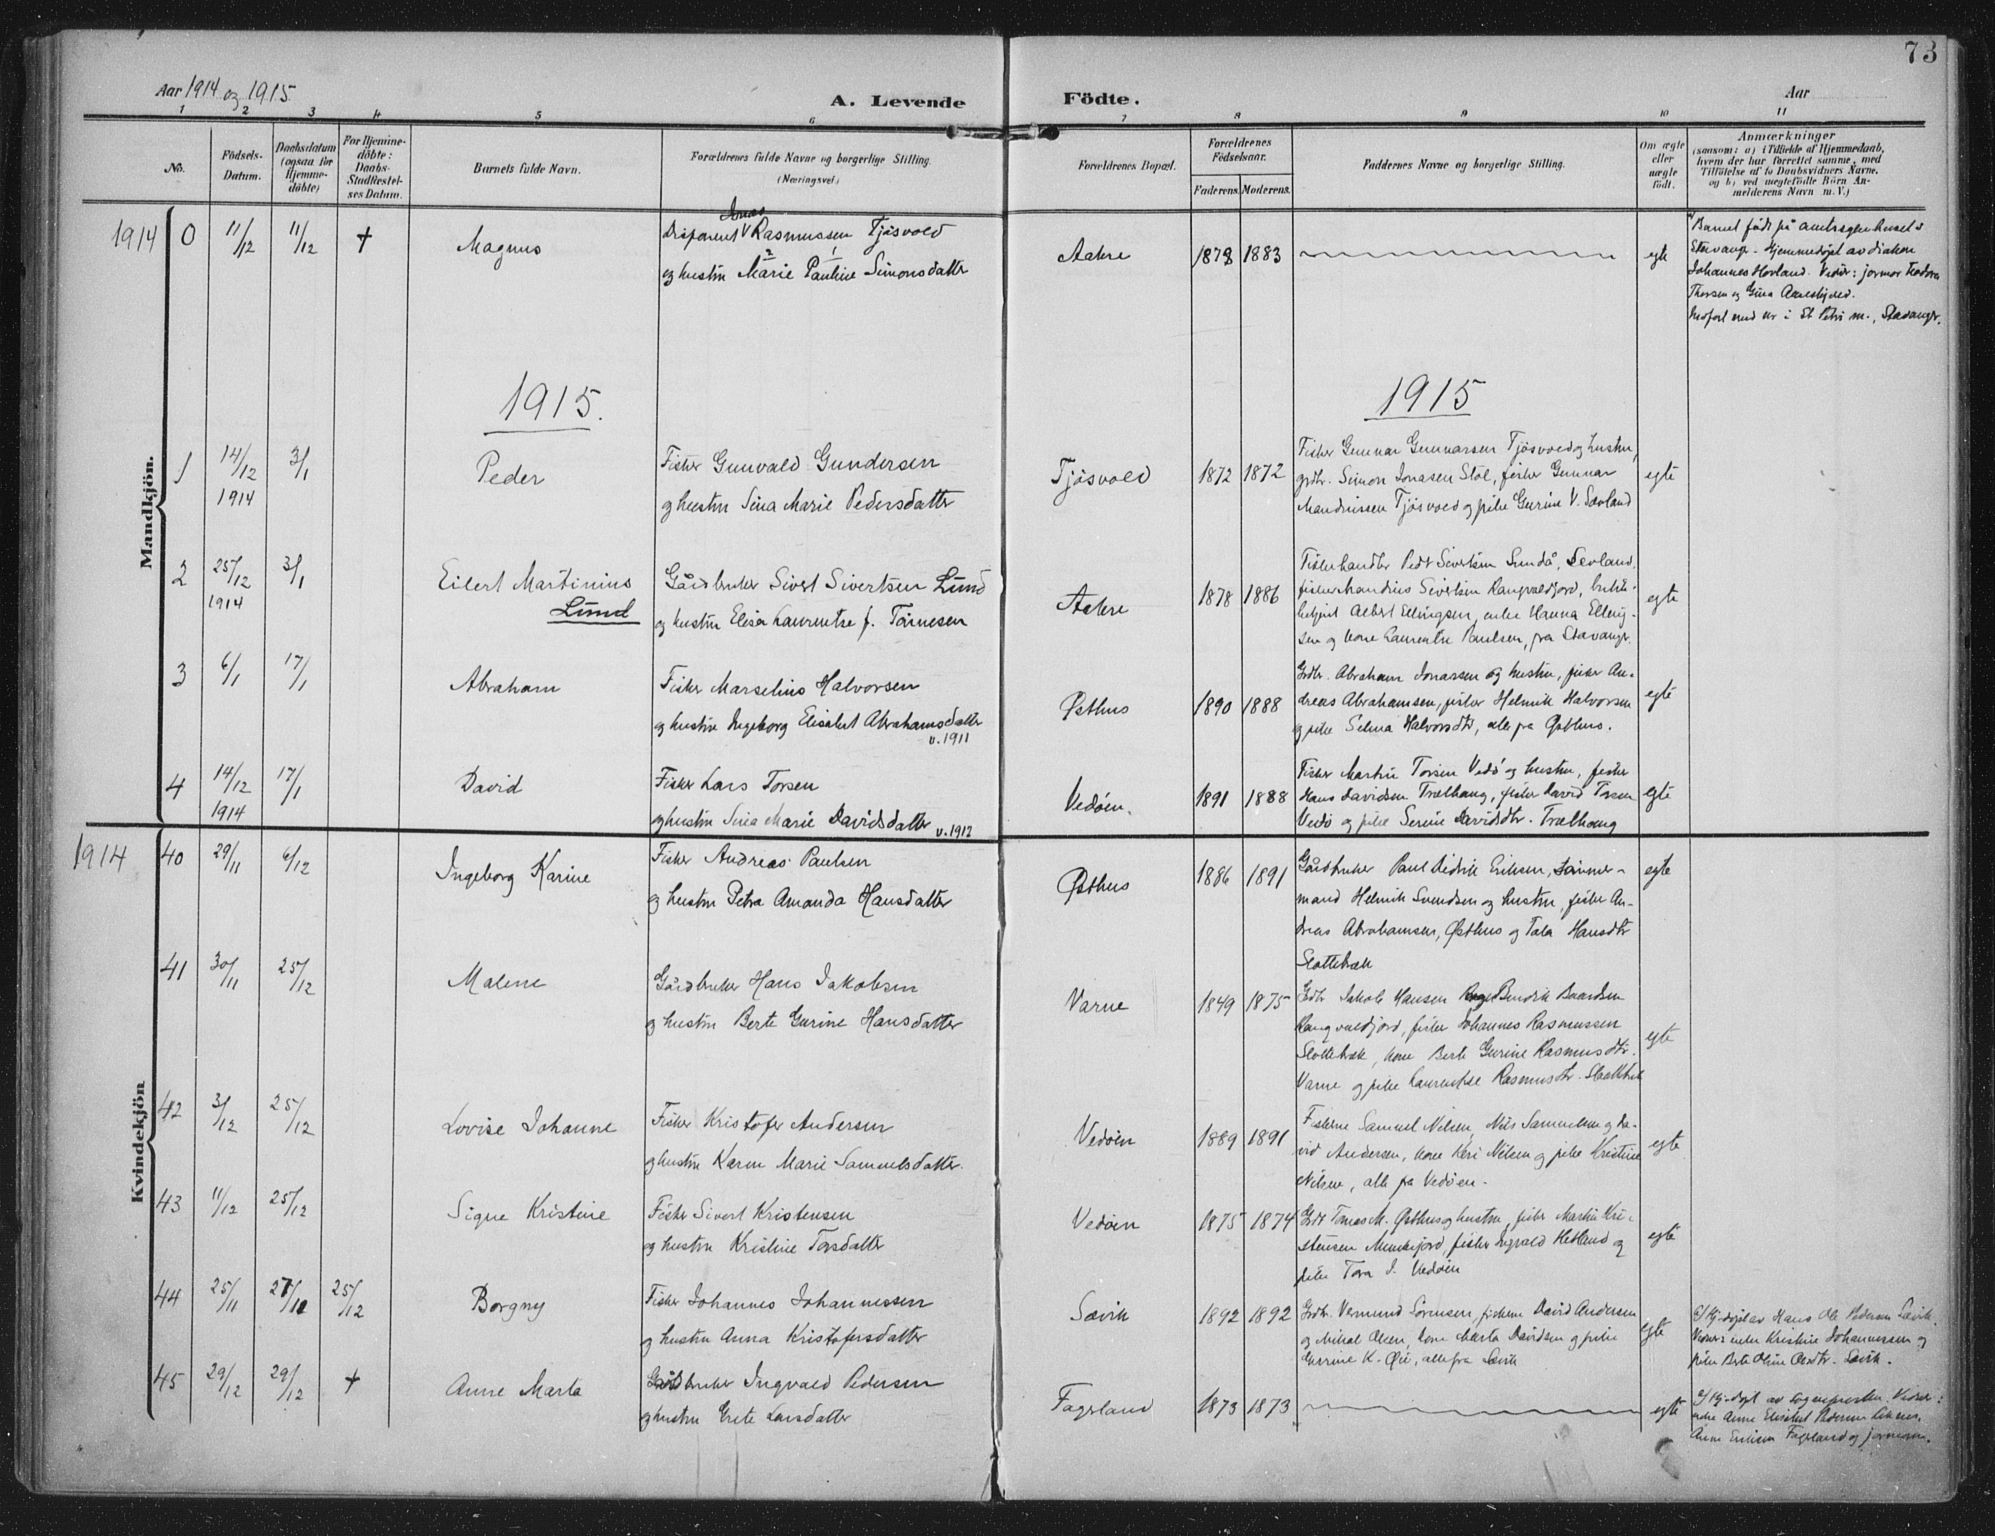 73
Aar 1914 og 1915.
A. Levende Födte.
Aar
1 2 3 4 5 6 7 8 9 10 11
No.
Födsels-Datum.
Daabsdatum (ogsaa for Hjemmedöbte)
For Hjemmedöbte: Daabs-Stadfæstelses Datum.
Barnets fulde Navn.
Forældrenes fulde Navne og borgerlige Stilling. (Næringsvei)
Forældrenes Bopæl.
Forældrenes Födselsaar.
Faderens. Moderens.
Faddernes Navne og borgerlige Stilling.
Om ægte eller uægte födt.
Anmærkninger
(saasom: a) i Tilfælde af Hjemmedaab,
hvem der har forrettet samme, med
Tilföielse af to Daabsvidners Navne,
og b) ved uægtefödte Börn An-
melderens Navn m. V.)
Mandkjön.
1914 0 11/12 11/12 + Magnus
Disponent Rasmussen Tjøsvold
og hustru Marie Pauline Simonsdatter
Aakre 1878 1883 egte
Barnet født på amtssykehuset i
Stavanger. Hjemmedøpt av diakon
Johannes Hovland. Vidner: jormor
Thorsen og Gina
i St Petri m., Stavanger.
1915. 1915
1 14/12 1914 3/1 Peder
Fisker Gunvald Gundersen
og hustru Sina Marie Pedersdatter
Tjøsvold 1872 1872
Fisker Gunnar Gunnarssen Tjøsvold og hustru,
grdbr. Simon Jonasen Stol, fisker Gunnar
Mandriussen Tjøsvold og pike Gurine V. Sævland
egte
2 25/12 1914 3/1 Eilert Martinius Lund
Gårdbruker Sivert Sivertsen Lund
og hustru Elisa Laurentse f. Tønnesen
Aakre 1878 1886
Fiskerhandler Sivertsen Sundå, Sevland,
fisker Mandrius Sivertsen Rangvaldfjord,
Albert Ellingsen, enke Hanna Elling-
sen og kone Laurentse Paulsen, fra Stavanger.
egte
3 6/1 17/1 Abraham
Fisker Marselius Halvorsen
og hustru Ingeborg Elisabet Abrahamsdatter
v. 1911
Østhus 1890 1888
Grdbr. Abraham Jonassen og hustru, fisker An-
dreas Abrahamsen, fisker Helmik Halvorsen
og pike Selma Halvorsdtr, alle fra Østhus.
egte
4 14/12 1914 17/1 David
Fisker Lars Torsen
og hustru Sina Marie Davidsdatter
v. 1912
Vedøen. 1891 1888
Fisker Martin Torsen Vedø og hustru, fisker
Hans Davidsen Trælhaug, fisker David Torsen
Vedø og pike Serine Davidsdtr. Trælhaug
egte
Kvindekjön
1914 40 29/11 6/12 Ingeborg Karine
Fisker Andreas Paulsen
og hustru Petra Amanda Hansdatter
Østhus 1886 1891
Gårdbruker Paul Didrik Eriksen, tømmer-
mand Helmik Svendsen og hustru, fisker An-
dreas Abrahamsen, Østhus og Tala Hansdtr
Slottebæk
egte
41 30/11 25/12 Malene
Gårdbruker Hans Jakobsen
og hustru Berte Gurine Hansdatter
Varne 1849 1875
Grdbr Jakob Hansen Bendik Baardsen
Rangvaldfjord, fisker Johannes Rasmussen
Slottebæk, kone Berte Gurine Rasmusdtr.
Varne og pike Laurentse Rasmusdtr.
egte
42 3/12 25/12 Lovise Johanne
Fisker Kristofer Andersen
og hustru Karen Marie Samuelsdatter.
Vedøen 1889 1891
Fiskerne Samuel Nilsen, Nils Samuelsen og Da-
vid Andersen, kone Keri Nilsen og pike Kristine
Nilsen, alle fra Vedøen.
egte
43 11/12 25/12 Signe Kristine
Fisker Sivert Kristensen
og hustru Kristine Torsdatter
Vedøen 1875 1874
Grdbr Tomas M. Østhus og hustru, fisker Martin Kri-
stensen Munkejord, fisker Ingvald Hetland og
pike Tora J. Vedøen
egte
44 25/11 27/11 25/12 Borgny
Fisker Johannes Johannessen
og hustru Anna Kristofersdatter
Sævik 1892 1892
Grdbr. Vermund Sørensen, fiskerne David Andersen
og Mikal Olsen, kone Marta Davidsen og pike
K. Øie, alle fra Sævik
egte
Hj.døpt av Hans Ole Pedersen Sævik.
Vidner: enke Kristine Johannessen og
pike Berte Oline Olsdtr. Sævik.
45 29/12 29/12 + Anne Marta
Gårdbruker Ingvald Pedersen
og hustru Grete Larsdatter
Fagerland 1873 1873 egte
Hj.døpt av sognepresten. Vidner:
enke Anne Elisabet Pedersen
Anne Eriksen Fagerland og jormoren.